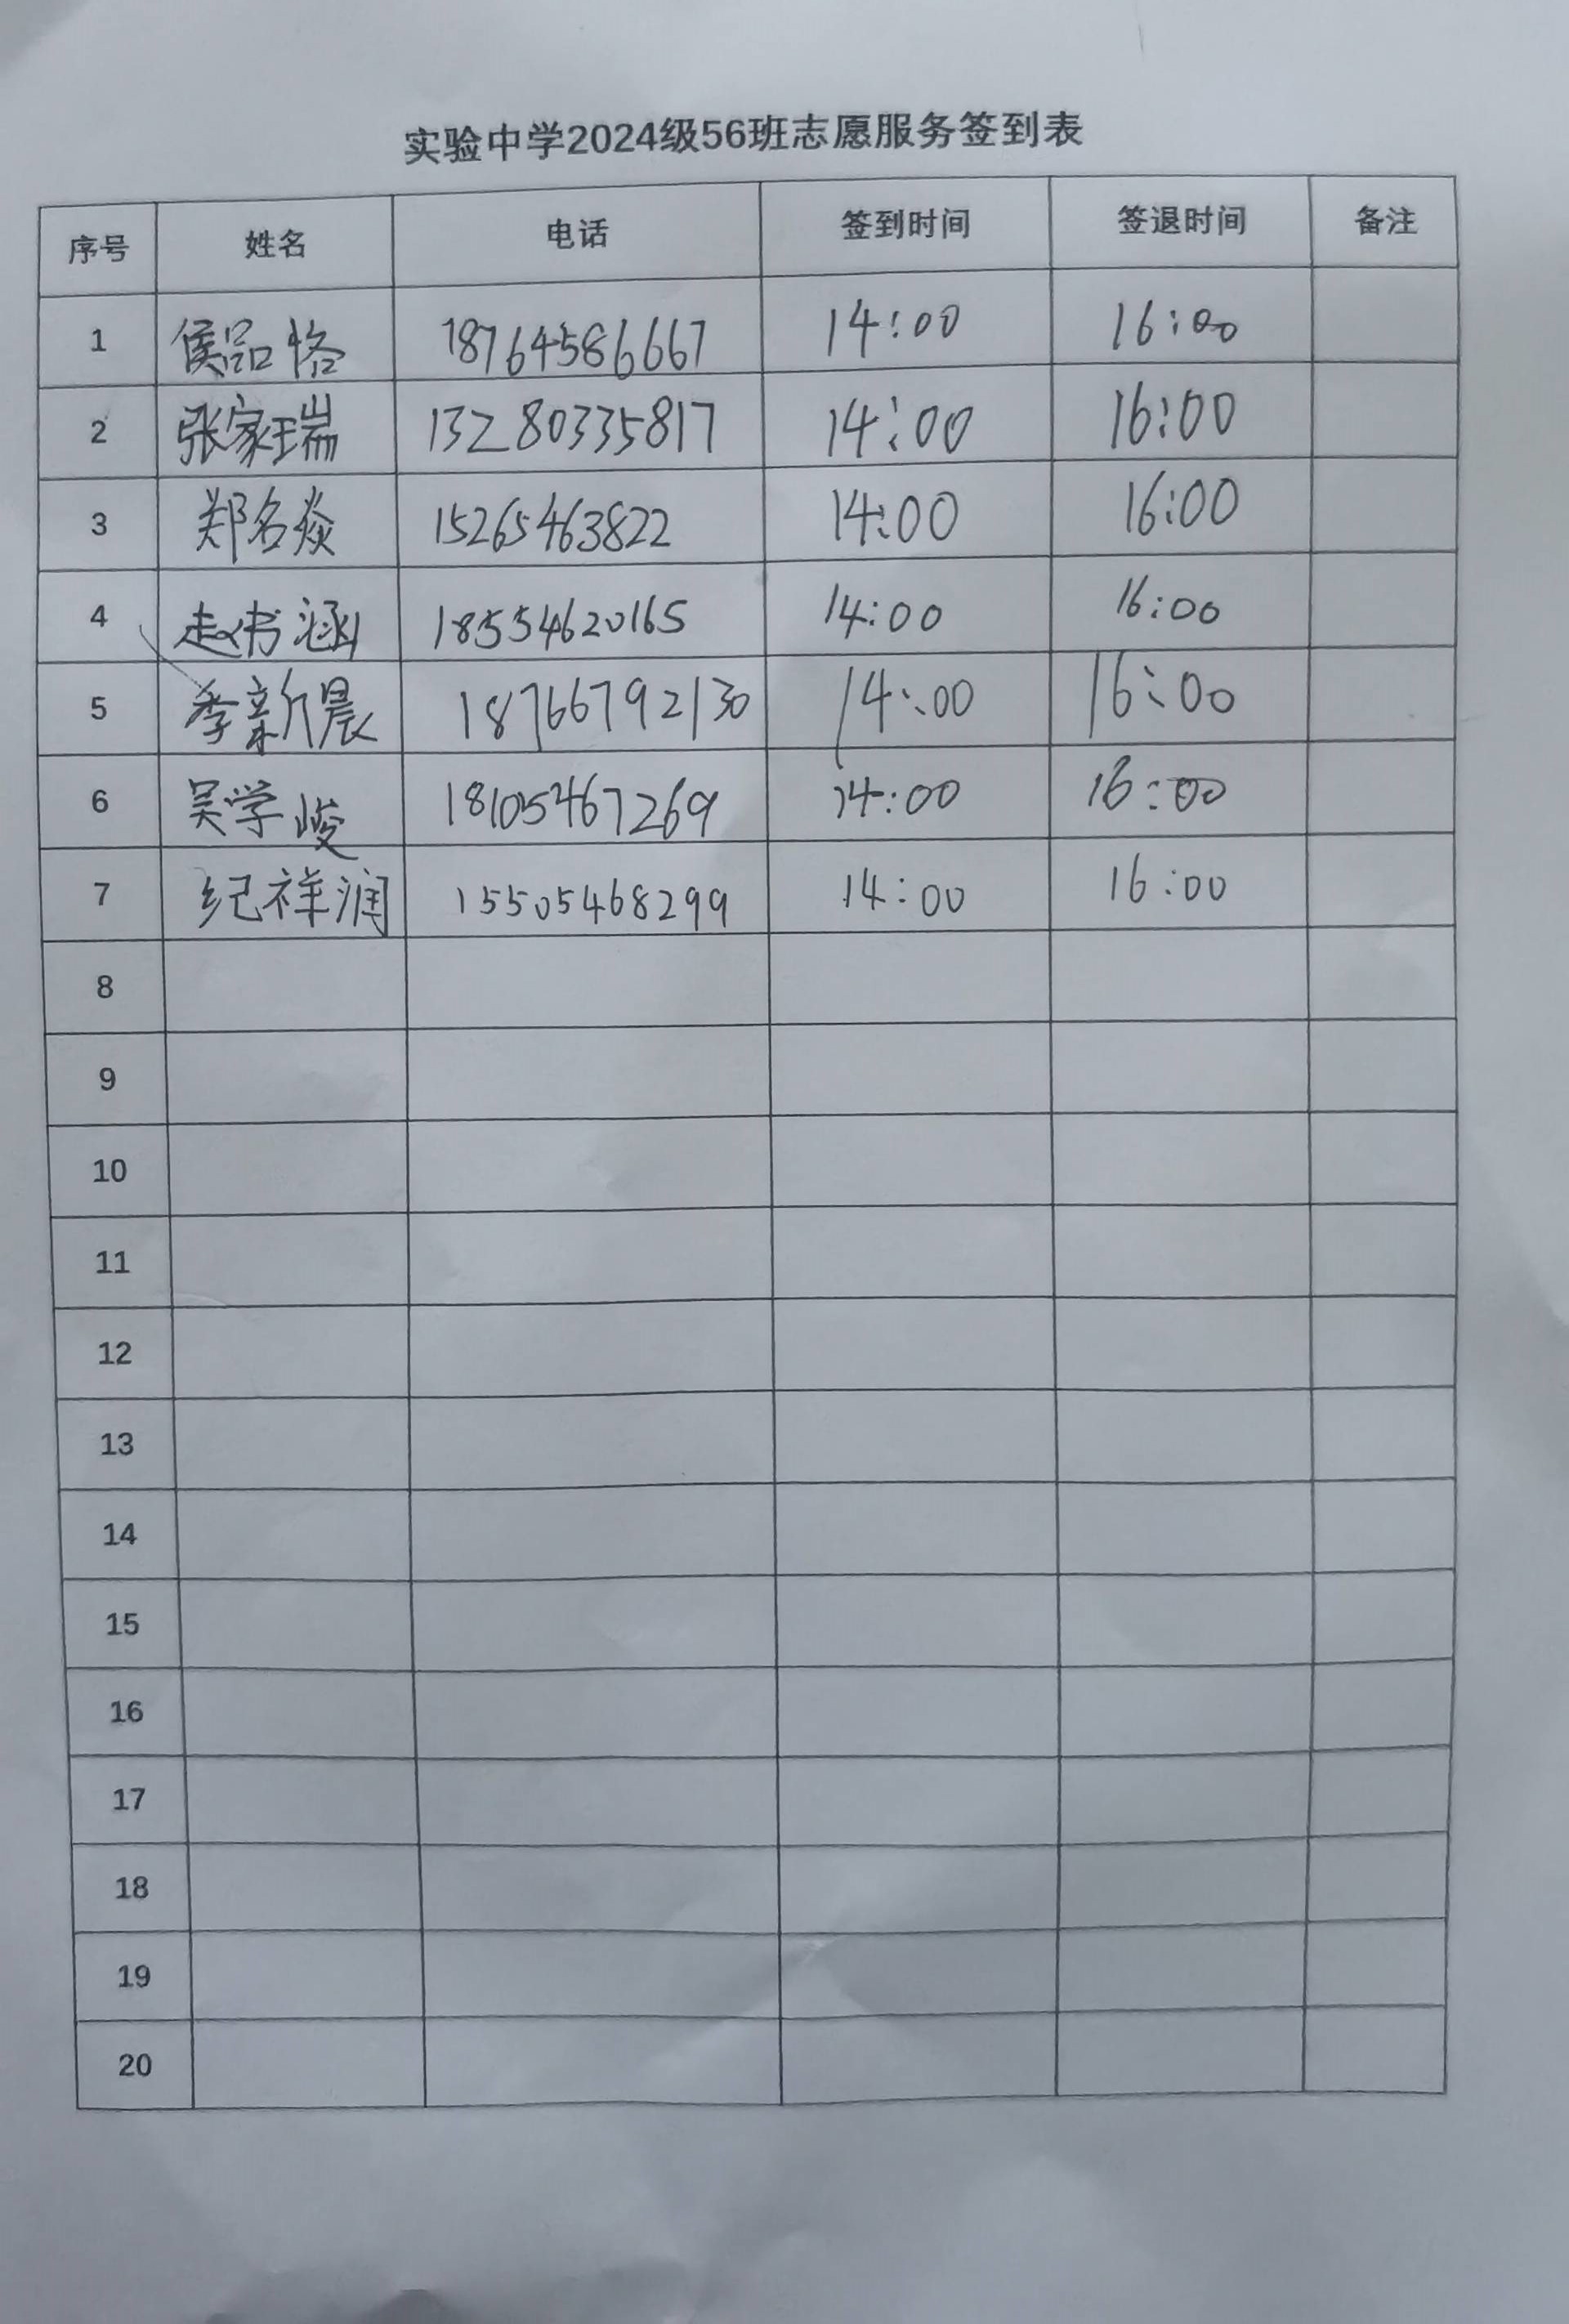 实验中学2024级56班志愿服务签到表
序号 姓名 电话 签到时间 签退时间 备注
1 侯品恪 18764586667 14:00 16:00
2 张家瑞 13280335817 14:00 16:00
3 郑名焱 15265463822 14:00 16:00
4 赵书涵 18554620165 14:00 16:00
5 季新晨 18766792130 14:00 16:00
6 吴学峻 18105467269 14:00 16:00
7 纪祥润 15505468299 14:00 16:00
8
9
10
11
12
13
14
15
16
17
18
19
20